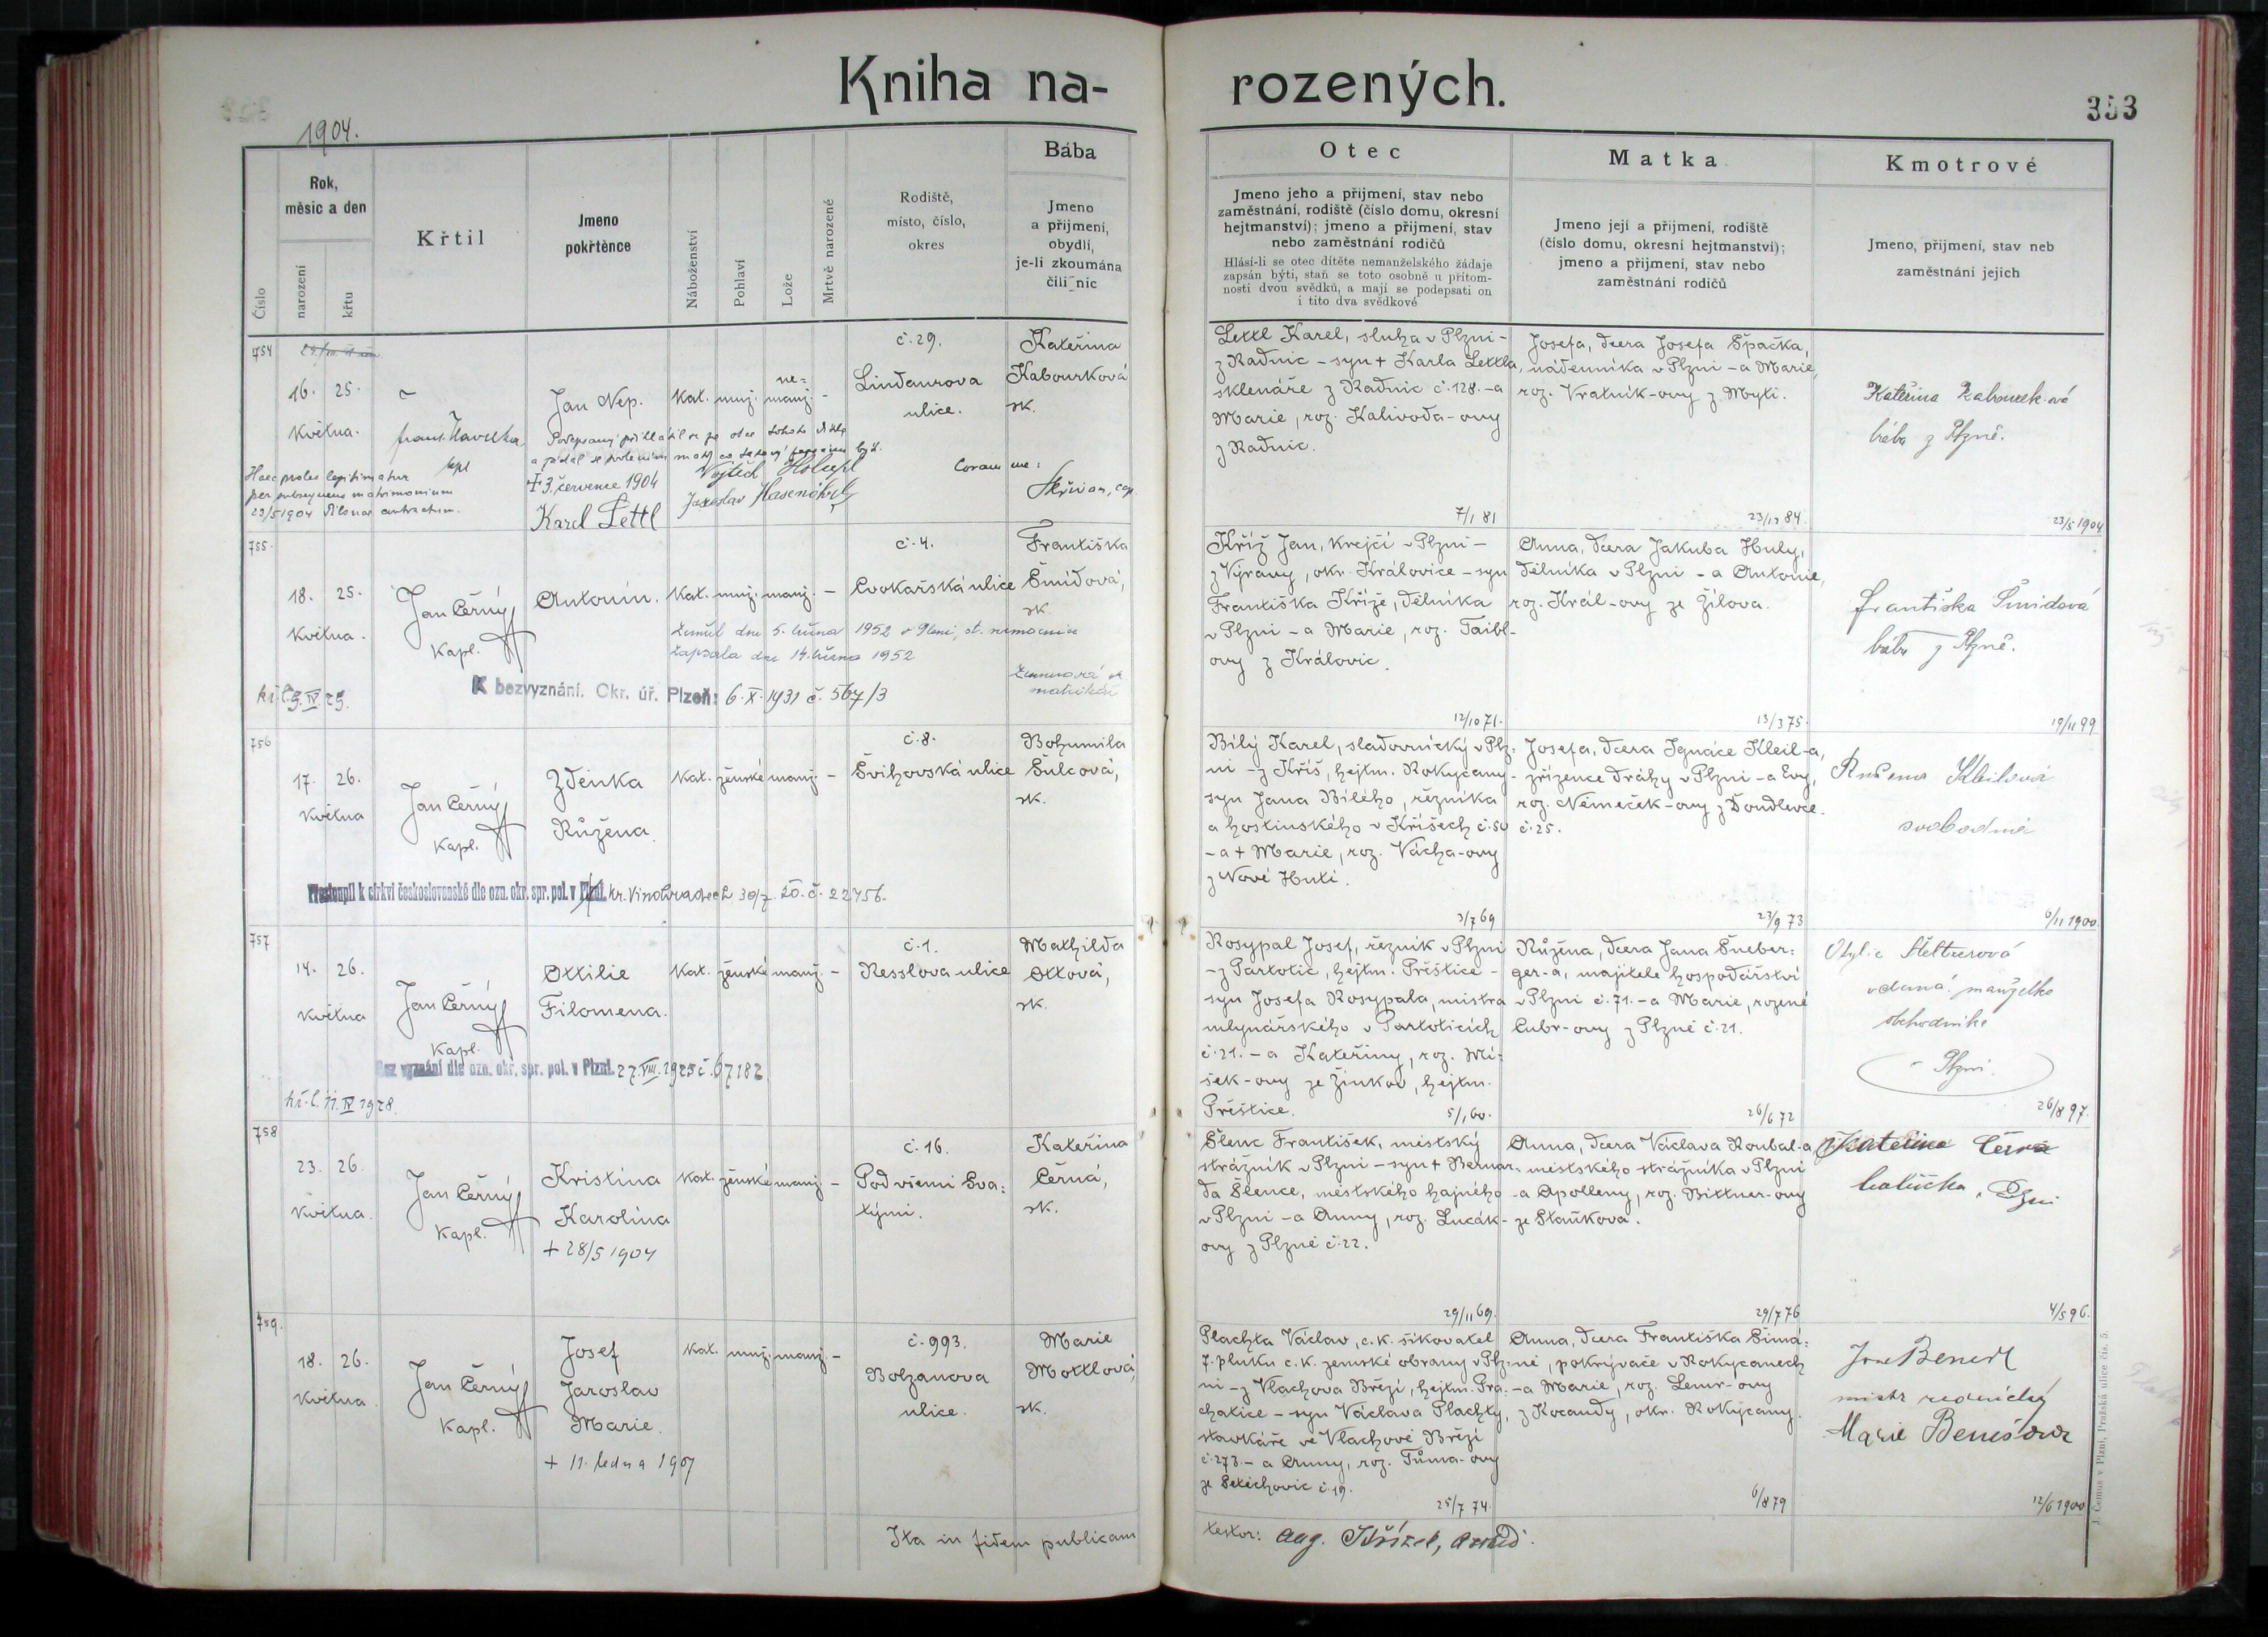 Kniha na-
rozených.
353
1904.
Číslo
Rok,
měsic a den
narození
křtu
Křtil
Jmeno
pokřtěnce
Náboženství
Pohlaví
Lože
Mrtvě narozené
Rodiště,
místo, číslo,
okres
Bába
Jmeno
a přijmení,
obydlí,
je-li zkoumána
čili nic
Otec
Jmeno jeho a přijmení, stav nebo
zaměstnání, rodiště (číslo domu, okresní
hejtmanství); jmeno a přijmení, stav
nebo zaměstnání rodičů
Hlásí-li se otec dítěte nemanželského žádaje
zapsán býti, staň se toto osobně u přítom-
nosti dvou svědků, a mají se podepsati on
i tito dva svědkové
Matka
Jmeno její a přijmení, rodiště
(číslo domu, okresní hejtmanství);
jmeno a přijmení, stav nebo
zaměstnání rodičů
Kmotrové
Jmeno, přijmení, stav neb
zaměstnání jejich
754
16. 25.
Května.
Frant. Havelka
kpl
Jan Nep.
Kat. muž. ne=
manž. -
č. 29.
Lindaurova
ulice.
Kateřina
Kabourková
zk.
Podepsaný přihlásil se za otce tohoto dítka
+ 3. července 1904
Karel Lettl
Vojtěch
Jaroslav
Coram me:
Skřivan, cap.
Haec proles legitimatur
per subsequens matrimonium
23/5 1904 Pilsnae contractum.
Lettl Karel, sluha v Plzni -
z Radnic - syn + Karla Lettla,
sklenáře z Radnic č. 128. - a
Marie, roz. Kalivoda-ovy
z Radnic.
7/1 81
Josefa, dcera Josefa Špačka,
nádenníka v Plzni - a Marie,
roz. Vratník-ovy z Mýti.
23/12 84.
Kateřina Kabourková
bába z Plzně.
23/5 1904
755.
18. 25.
Května.
Jan Černý
Kapl.
Antonín.
Kat. muž. manž. -
č. 4.
Cvokařská ulice
Františka
Šmídová,
zk.
Zemřel dne 5. března 1952 v Plzni, st. nemocnice
Zapsala dne 14. března 1952
matrikář
kř. l. 9. IV. 29.
K bezvyznání. Okr. úř. Plzeň: 6. X. 1931 č. 567/3
Kříž Jan, krejčí v Plzni -
z Výravy, okr. Královice - syn
Františka Kříže, dělníka
v Plzni - a Marie, roz. Taibl-
ovy z Královic.
12/10 71.
Anna, dcera Jakuba Huly,
dělníka v Plzni - a Antonie,
roz. Král-ovy ze Žilova.
13/3 75.
Františka Šmidová
bába z Plzně.
19/11 99
756
17. 26.
Května
Jan Černý
Kapl.
Zdeňka
Růžena
Kat. ženské manž. -
č. 8.
Švihovská ulice
Bohumila
Šulcová,
zk.
Přestoupil k církvi československé dle ozn. okr. spr. pol. v Plzni. kr. Vinohradech 30/7. 20. č. 22756.
Bílý Karel, sladovnický v Plz-
ni - z Kříš, hejtm. Rokycany -
syn Jana Bílého, řezníka
a hostinského v Kříšech č. 50
- a + Marie, roz. Vácha-ovy
z Nové Huti.
3/7 69
Josefa, dcera Ignáce Kleil-a,
zřízence dráhy v Plzni - a Evy,
roz. Němeček-ovy z Doudlevce
č. 25.
23/9 73
Růžena Kleilová
svobodná
6/11 1900.
757
14. 26.
Května
Jan Černý
Kapl.
Ottilie
Filomena.
Kat. ženské manž. -
č. 1.
Resslova ulice
Mathilda
Ottová,
zk.
Bez vyznání dle ozn. okr. spr. pol. v Plzni. 27. VIII. 1923 č. 67182
kř. l. 11. IV 1928.
Rosypal Josef, řezník v Plzni
- z Partotic, hejtm. Přeštice -
syn Josefa Rosypala, mistra
mlynářského v Partoticích
č. 21. - a Kateřiny, roz. Mí-
šek-ovy ze Žinkov, hejtm.
Přeštice.
5/1 60.
Růžena, dcera Jana Šneber=
ger-a, majitele hospodářství
v Plzni č. 71. - a Marie, rozené
Cubr-ovy z Plzně č. 21.
26/6 72
vdaná. manželka
obchodníka
v Plzni.
26/8 97.
758
23. 26.
Května.
Jan Černý
Kapl.
Kristina
Karolina
+ 28/5 1904
Kat. ženské manž. -
č. 16.
Pod všemi Sva=
týmí.
Kateřina
Černá,
zk.
Šlenc František, městský
strážník v Plzni - syn + Bernar-
da Šlence, městského hajného
v Plzni - a Anny, roz. Lucák-
ovy z Plzně č. 22.
29/11 69.
Anna, dcera Václava Roubal-a,
městského strážníka v Plzni
- a Apolleny, roz. Bittner-ovy
ze Staňkova.
29/7 76
Kateřina Černá
babička v Plzni
4/5 96.
759.
18. 26.
Května
Jan Černý
Kapl.
Josef
Jaroslav
Marie.
+ 11. ledna 1907
Kat. muž. manž. -
č. 993.
Bolzanova
ulice.
Marie
Mottlová,
zk.
Plachta Václav, c. k. šikovatel
7. pluku c. k. zemské obrany v Plz-
ni - z Vlachova Březí, hejtm. Pra-
chatice - syn Václava Plachty,
stavkáře ve Vlachově Březí
č. 278. - a Anny, roz. Tůma-ovy
ze Setěchovic č. 19.
25/7 74.
Anna, dcera Františka Šimá=
ně, pokrývače v Rokycanech
- a Marie, roz. Lemr-ovy
z Kocandy, okr. Rokycany.
6/8 79
mistr řeznický
Marie Benešová
12/6 1900
Ita in fidem publicam
testor: Aug. Křížek, arcid.
J. Čemus v Plzni, Pražská ulice čís. 5.